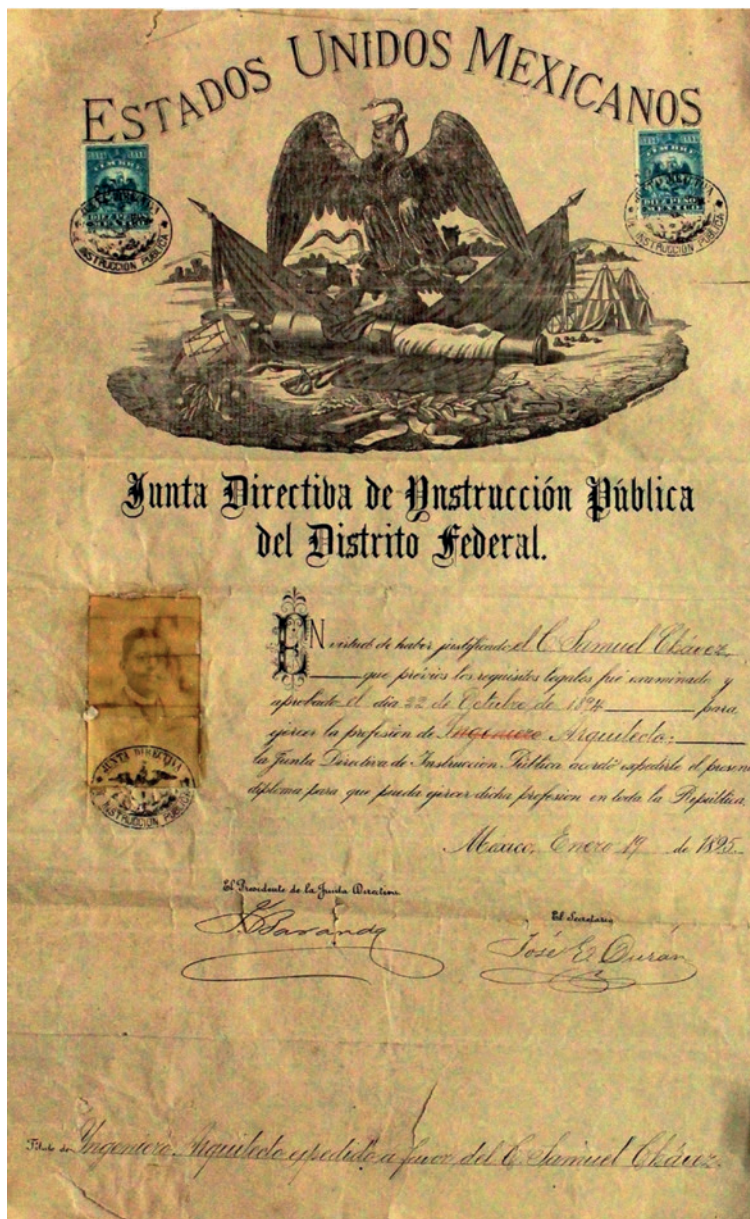 ESTADOS UNIDOS MEXICANOS
TIMBRE
DIEZ PESOS
MEXICO
JUNTA DIRECTIVA
DE INSTRUCCION PUBLICA
TIMBRE
DIEZ PESOS
MEXICO
JUNTA DIRECTIVA
DE INSTRUCCION PUBLICA
Junta Directiva de Ynstrucción Pública
del Distrito Federal.
EN virtud de haber justificado el C. Samuel Chávez
que prévios los requisitos legales fué examinado y
aprobado el dia 22 de Octubre de 1894 para
ejercer la profesión de Ingeniero Arquitecto:
la Junta Directiva de Instrucción Pública acordó expedirle el presen
diploma para que pueda ejercer dicha profesion en toda la República
JUNTA DIRECTIVA
DE INSTRUCCION PUBLICA
Mexico, Enero 19 de 1895.
El Presidente de la Junta Directiva
El Secretario
J. Baranda
José E. Durán
Título de Yngeniero Arquitecto expedido a favor del C. Samuel Chávez.